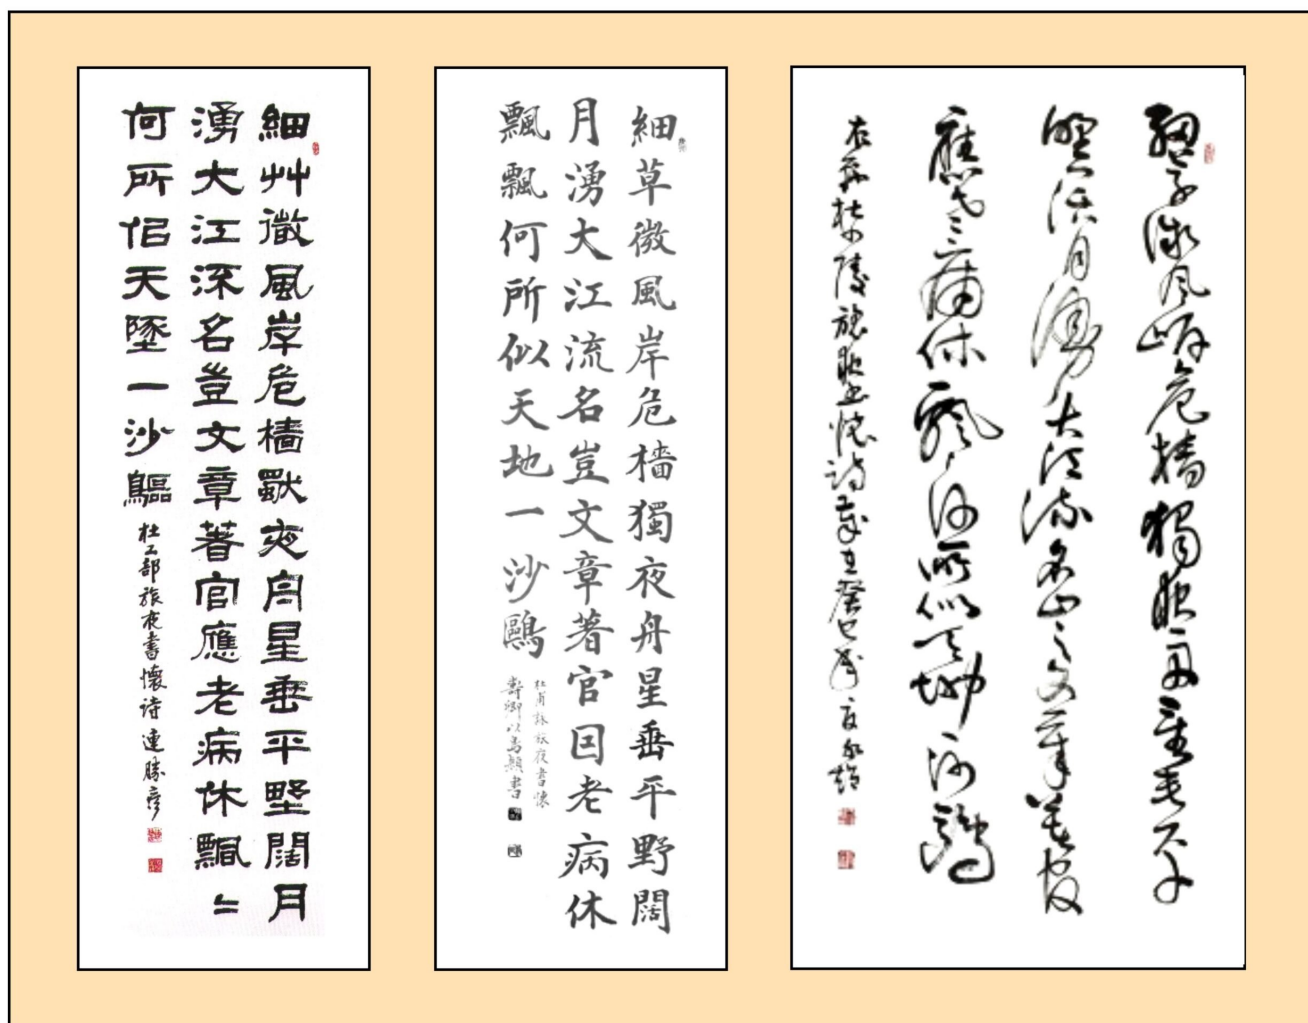 細艸微風岸危檣獨夜舟星垂平野闊月
湧大江流名豈文章著官應老病休飄〻
何所佀天墬一沙鷗
杜工部旅夜書懷诗連勝彥
細草微風岸危檣獨夜舟星垂平野闊
月湧大江流名豈文章著官因老病休
飄飄何所似天地一沙鷗
杜甫詠旅夜書懷
壽卿以書
細草微風岸危檣獨夜舟星垂平
野闊月湧大江流名豈文章著官
應老病休飄〻何所似天地一沙鷗
杜少陵旅夜書懷詩歲在癸巳